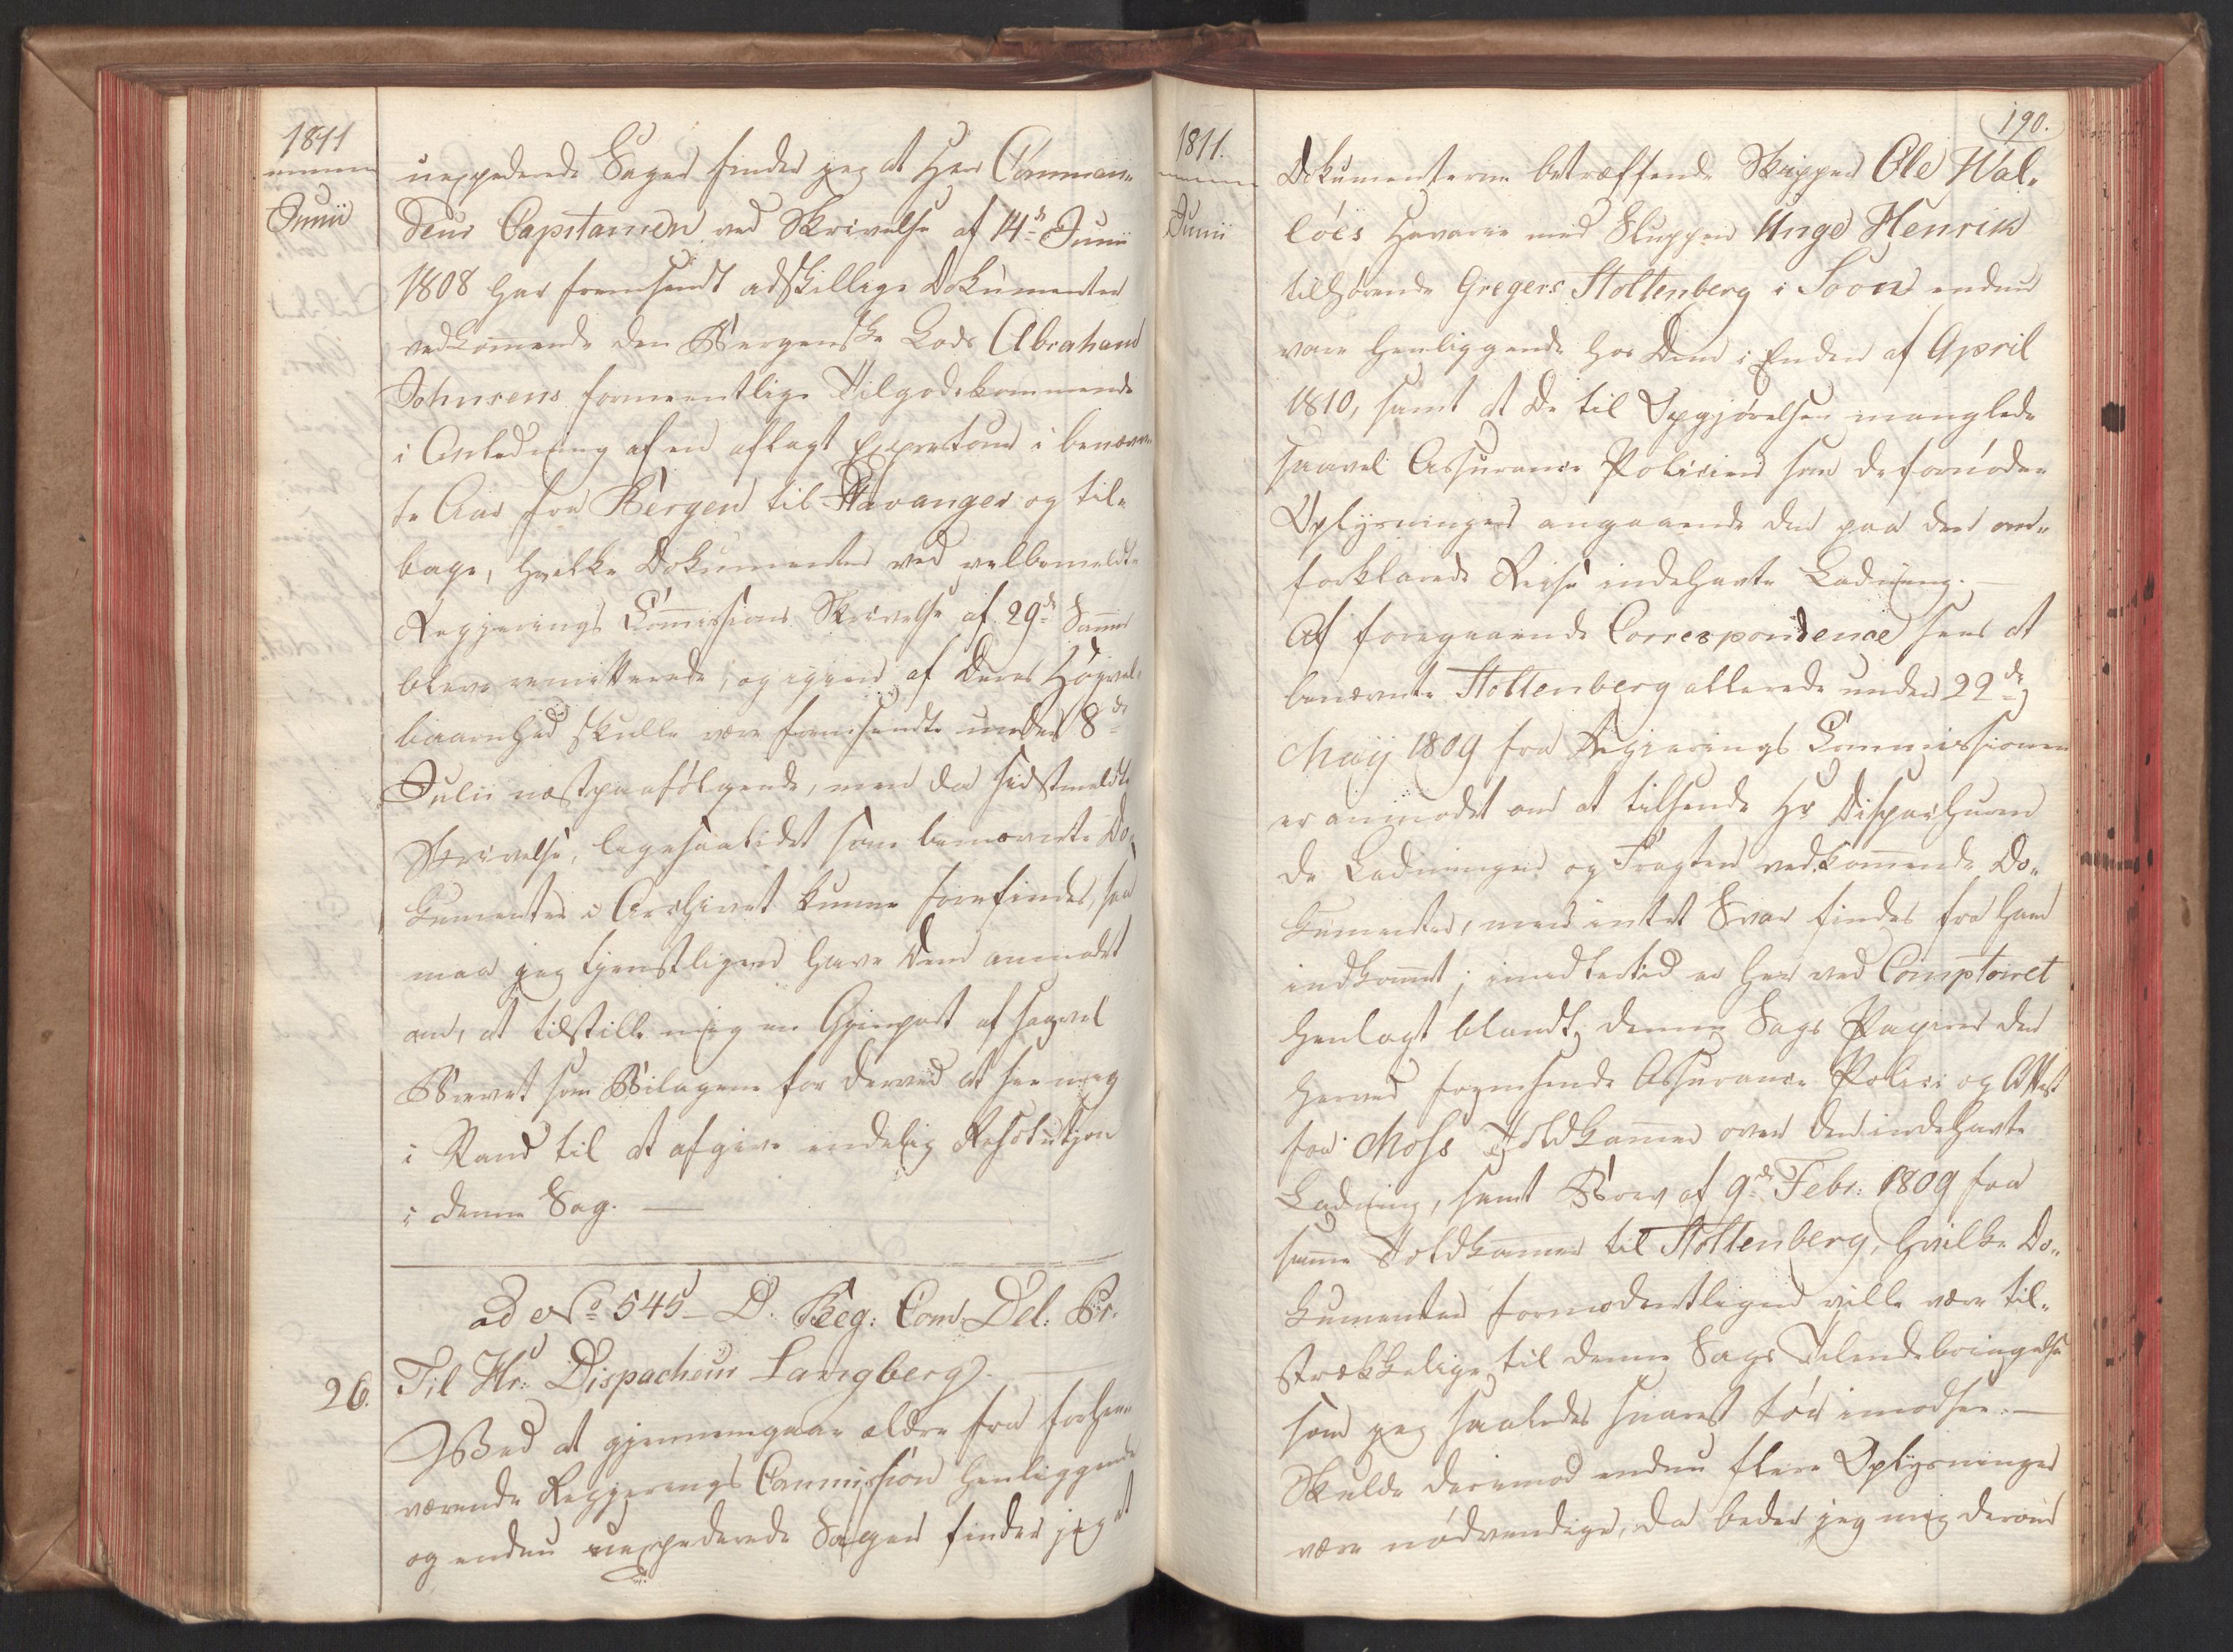 1811
Junii
uexpederede Sager finder jeg at Herr Comman„
deur Capitainen ved Skrivelse af 14de Junii
1808 har fremsendt adskillige Dokumenter
vedkom̅ende den Bergenske Lods Abraham
Johnsens formeentlige Tilgodekommende
i Anledning af en aflagt Exprestour i benævn„
te Aar fra Bergen til Stavanger og til„
bage, hvilke Dokumenter ved velbemeldte
Regjerings Com̅issions Skrivelse af 29de Sam̅e
bleve remitterede, og igien af Deres Høyvel„
baarnhed skulle være fremsendte under 8de
Julii næstpaafølgende, men da sidstmeldte
Skrivelse, ligesaalidet som benævnte Do„
kumenter i Archivet kunne forefindes, saa
maa jeg tjenstligen have Dem anmodet
om, at tilstille mig en Gjenpart af saavel
Brevet som Bilagene for derved at see mig
i Stand til at afgive endelig Resolution
i denne Sag. —
ad No 545 – D. Reg: Com: Del: Br.
26. Til Hr: Dispacheur Langberg. —
Ved at gjennemgaae ældre fra forhen„
værende Regjerings Commission henliggende
og endnu uexpederede Sager finder jeg at
190.
1811.
Junii
Dokumenterne betræffende Skipper Ole Wal„
löes Havarie med Sluppen Unge Henrik
tilhørende Gregers Stoltenberg i Soon endnu
vare henliggende hos Dem i Enden af April
1810, samt at De til Opgjørelsen manglede
saavel Assurance Policien som de fornødne
Oplysninger angaaende den paa den om„
forklarede Reise indehavte Ladning. —
Af foregaaende Correspondence sees at
benævnte Stoltenberg allerede under 22de
Maij 1809 fra Regjerings Commissionen
er anmodet om at tilsende Hr Dispacheuren
de Ladningen og Fragten vedkom̅ende Do„
kumenter, men intet Svar findes fra ham
indkom̅et; imidlertid er her ved Comptoiret
henlagt blandt denne Sags Papirer den
herved fremsendte Assurance Police og Attest
fra Moss Toldkam̅er over den indehavte
Ladning, samt Brev af 9de Febr: 1809 fra
sam̅e Toldkammer til Stoltenberg, hvilke Do„
kumenter formodentligen ville være til„
strækkelige til denne Sags Tilendebringelse
som jeg saaledes snarest tør imødsee. —
Skulde derimod endnu flere Oplysninger
være nødvendige, da beder jeg mig derom